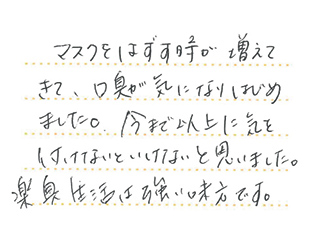 マスクをはずす時が増えて
きて、口臭が気になりはじめ
ました。今まで以上に気を
付けてないといけないと思いました。
楽臭生活は強い味方です。